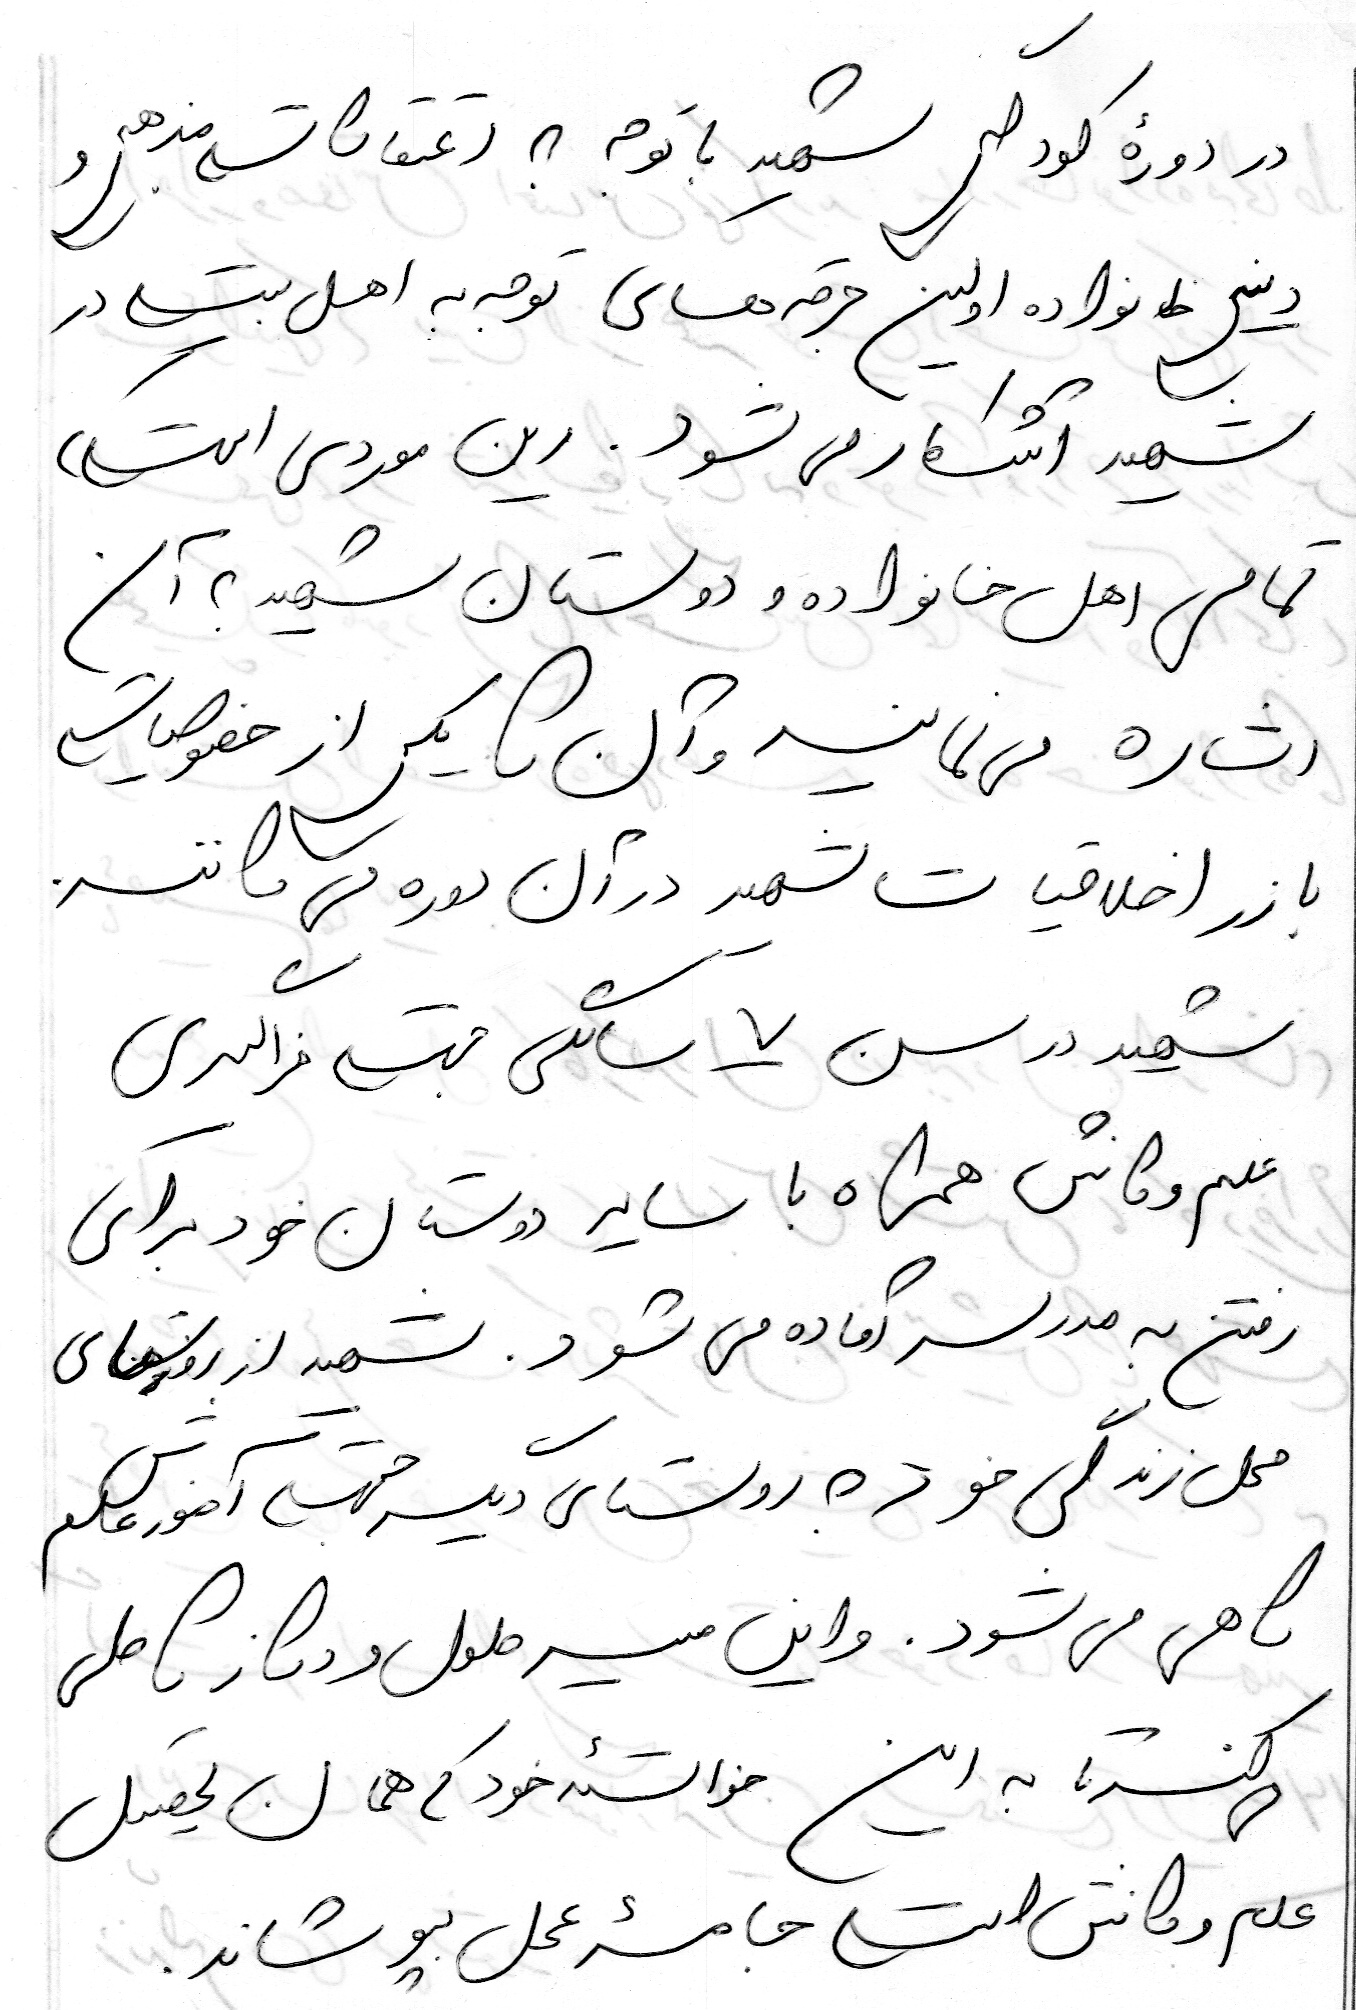 در دورهٔ کودکی شهید با توجه به اعتقادات مذهبی و
دینی خانواده اولین جرقه‌های توجه به اهل بیت در
شهید آشکار می‌شود. این موردی است که
تمامی اهل خانواده و دوستان شهید به آن
اشاره می‌نمایند و آن را یکی از خصوصیات
بارز اخلاقیات شهید در آن دوره می‌دانند.
شهید در سن ۷ سالگی جهت فراگیری
علم و دانش همراه با سایر دوستان خود برای
رفتن به مدرسه آماده می‌شود. شهید از روستای
محل زندگی خود به روستای دیگر جهت آموزش علم
راهی می‌شود. و این مسیر طول و دراز را طی
می‌کند تا به این خواستهٔ خود که همان تحصیل
علم و دانش است جامهٔ عمل بپوشاند.